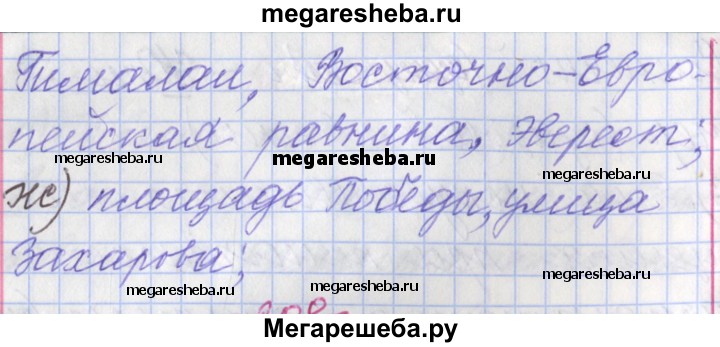 megaresheba.ru
Гималаи, Восточно-Евро-
пейская равнина, Эверест;
megaresheba.ru
megaresheba.ru
megaresheba.ru
ж) площадь Победы, улица
Захарова;
megaresheba.ru
megaresheba.ru
Мегарешеба.ру